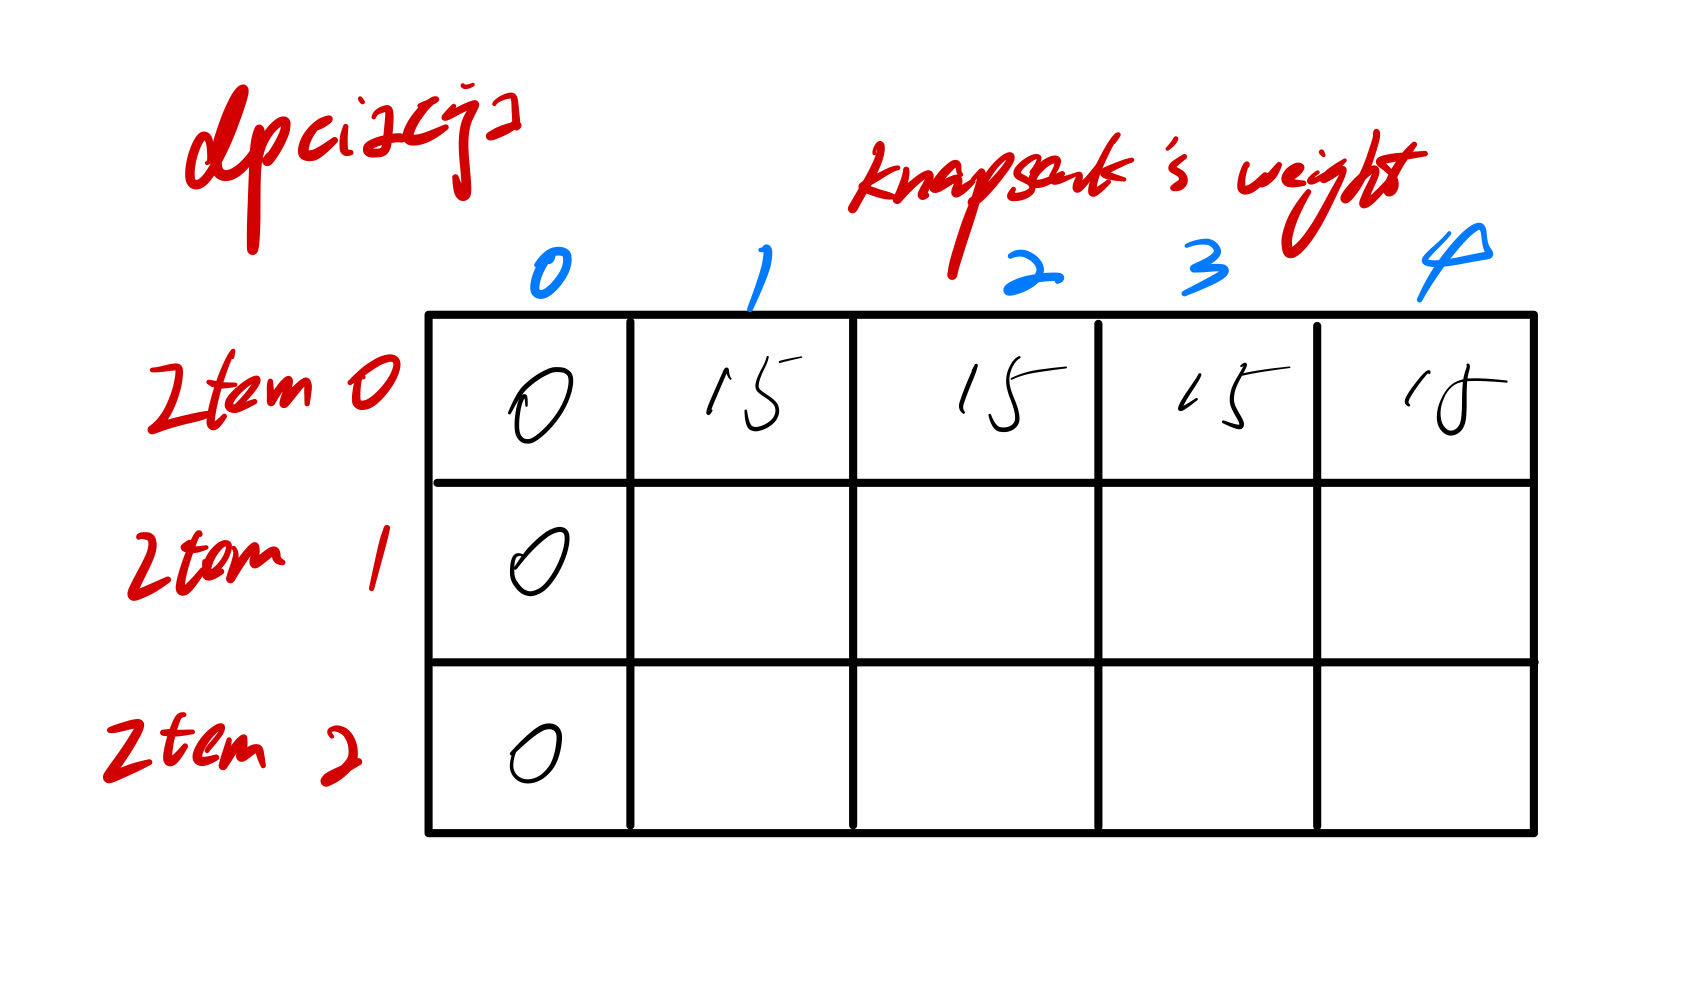 dp[i][j]
knapsack's weight
0 1 2 3 4
Item 0 0 15 15 15 15
Item 1 0
Item 2 0